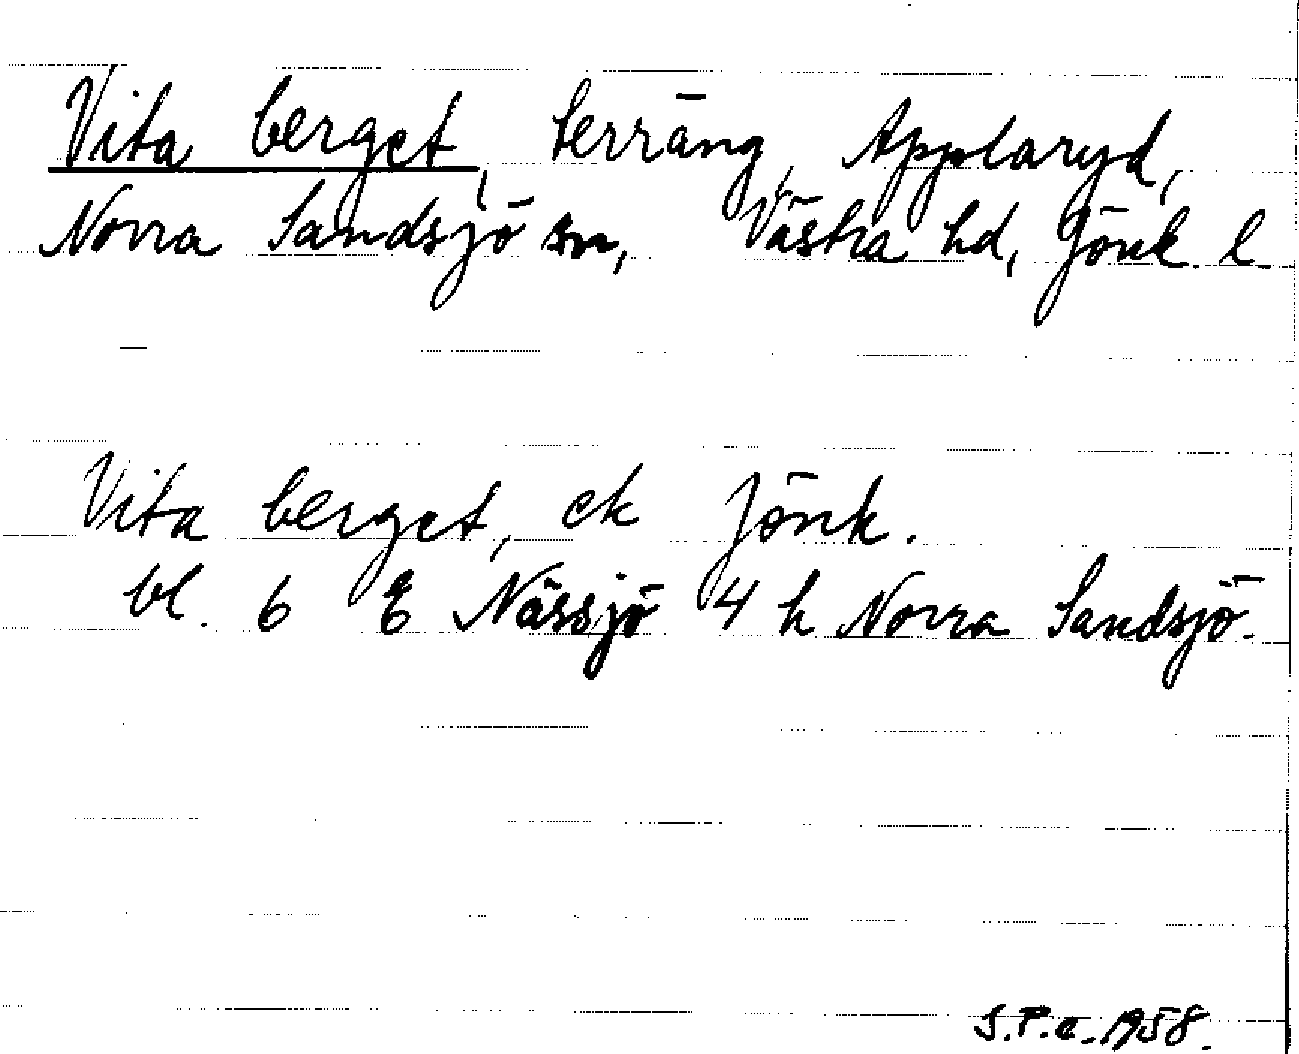 Vita berget, terräng, Applaryd,
Norra Sandsjö sn, Västra hd, Jönk. l.
Vita berget, ek Jönk.
bl. 6 E Nässjö 4 h Norra Sandsjö.
S.P.a. 1958.